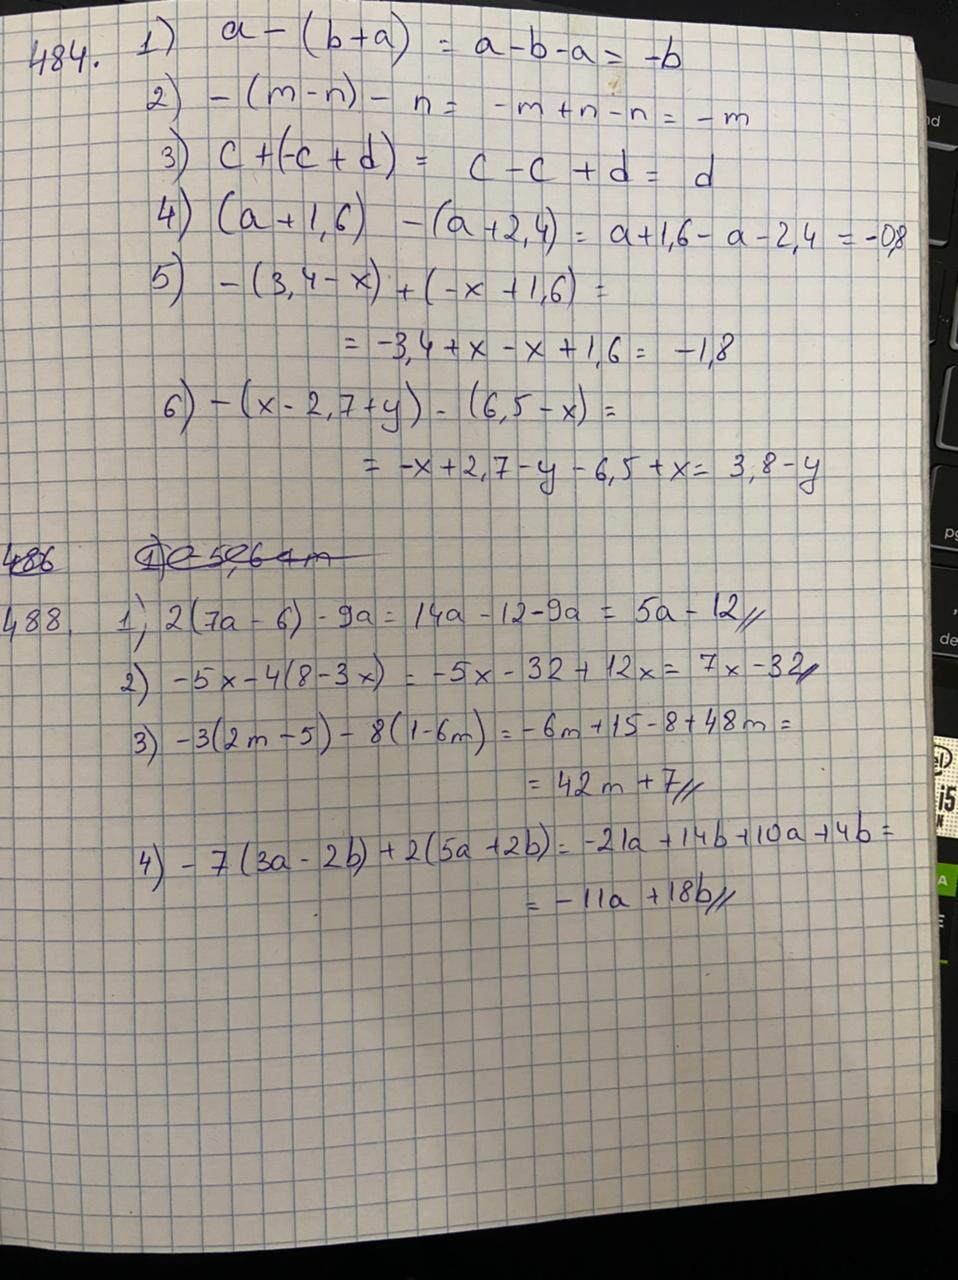 484. 1) a - (b+a) = a-b-a = -b
2) -(m-n) - n = -m+n-n = -m
3) c+(-c+d) = c-c+d = d
4) (a+1,6) -(a+2,4) = a+1,6-a-2,4 = -0,8
5) -(3,4-x)+(-x+1,6) =
= -3,4+x-x+1,6 = -1,8
6) -(x-2,7+y) - (6,5-x) =
= -x+2,7-y-6,5+x = 3,8-y
486
488. 1) 2(7a-6)-9a = 14a-12-9a = 5a-12//
2) -5x-4(8-3x) = -5x-32+12x = 7x-32//
3) -3(2m-5)-8(1-6m) = -6m+15-8+48m =
= 42m+7//
4) -7(3a-2b)+2(5a+2b) = -21a+14b+10a+4b =
= -11a+18b//
nd
pg
de
i5
A